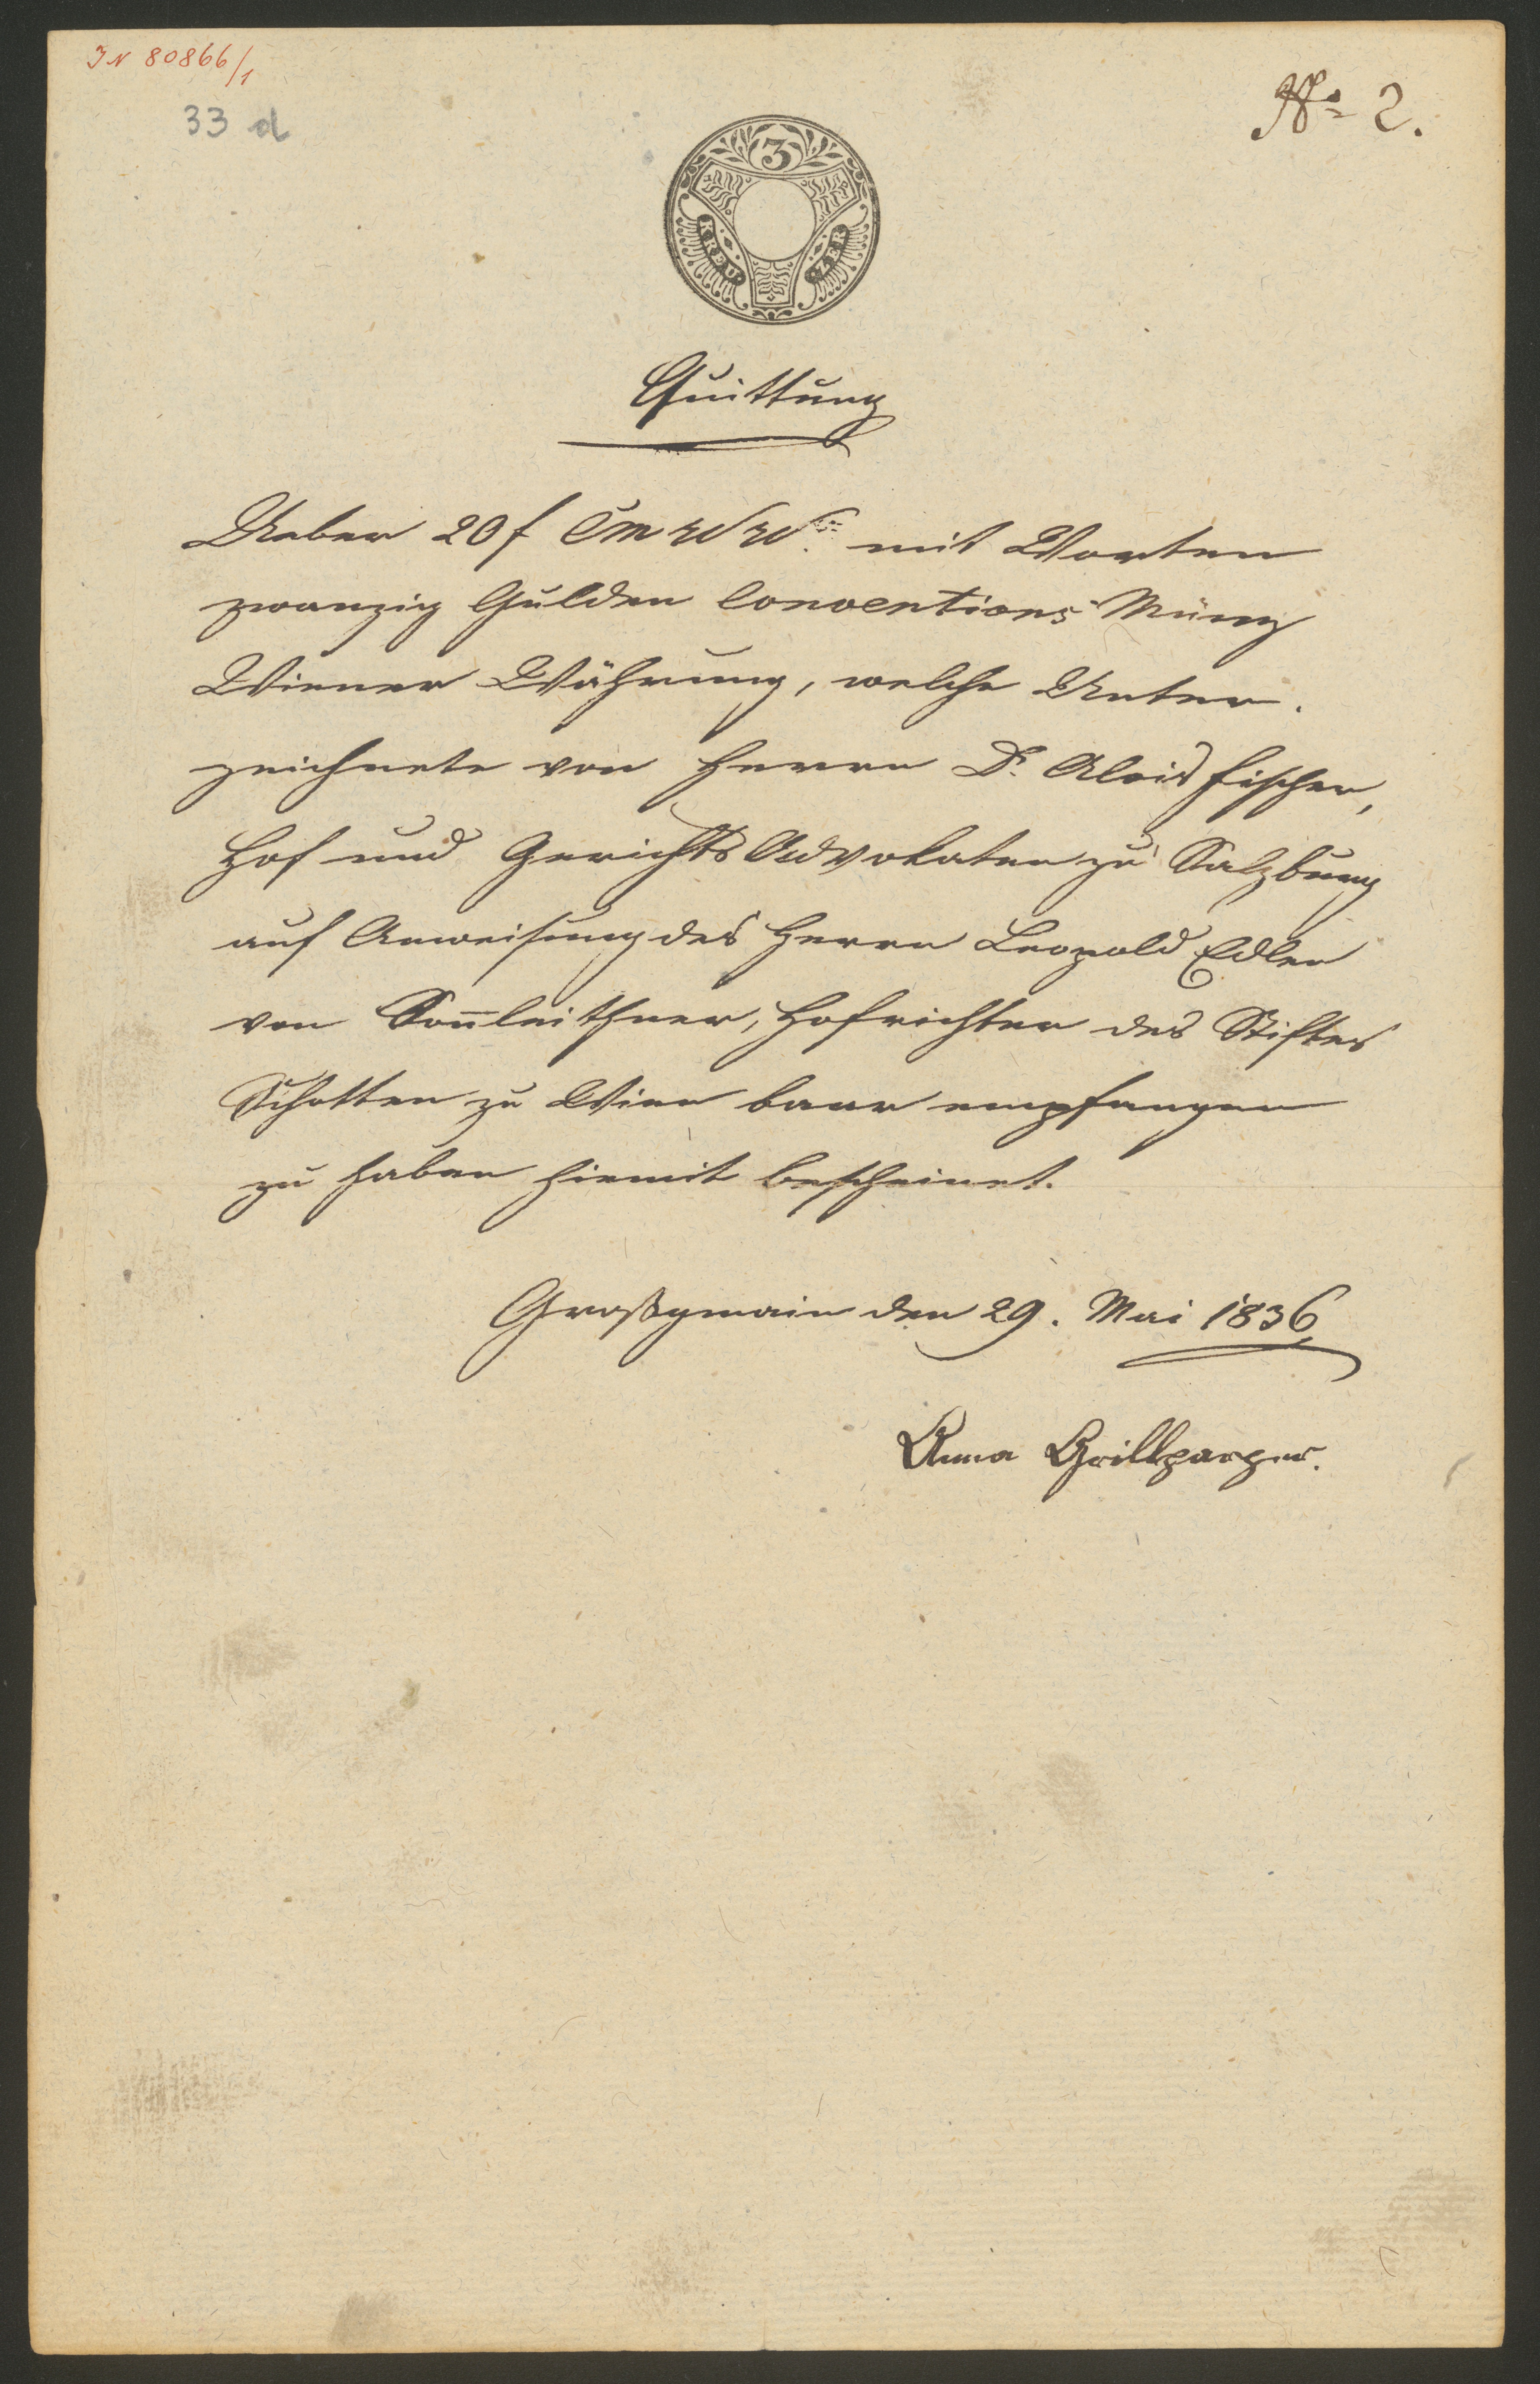 IN 80866/1
33 d
No 2.
3
KREU
ZER
Quittung
Ueber 20 f CM WW. mit Worten
zwanzig Gulden Conventions Münz
Wiener Währung, welche Unter-
zeichnete von Herrn Dr. Alois Fischer,
Hof und Gerichts Advokaten zu Salzburg
auf Anweisung des Herrn Leopold Edlen
von Son̄leithner, Hofrichter des Stiftes
Schotten zu Wien baar empfangen
zu haben hiemit bescheinet.
Großgmain den 29. Mai 1836
Anna Grillparzer.